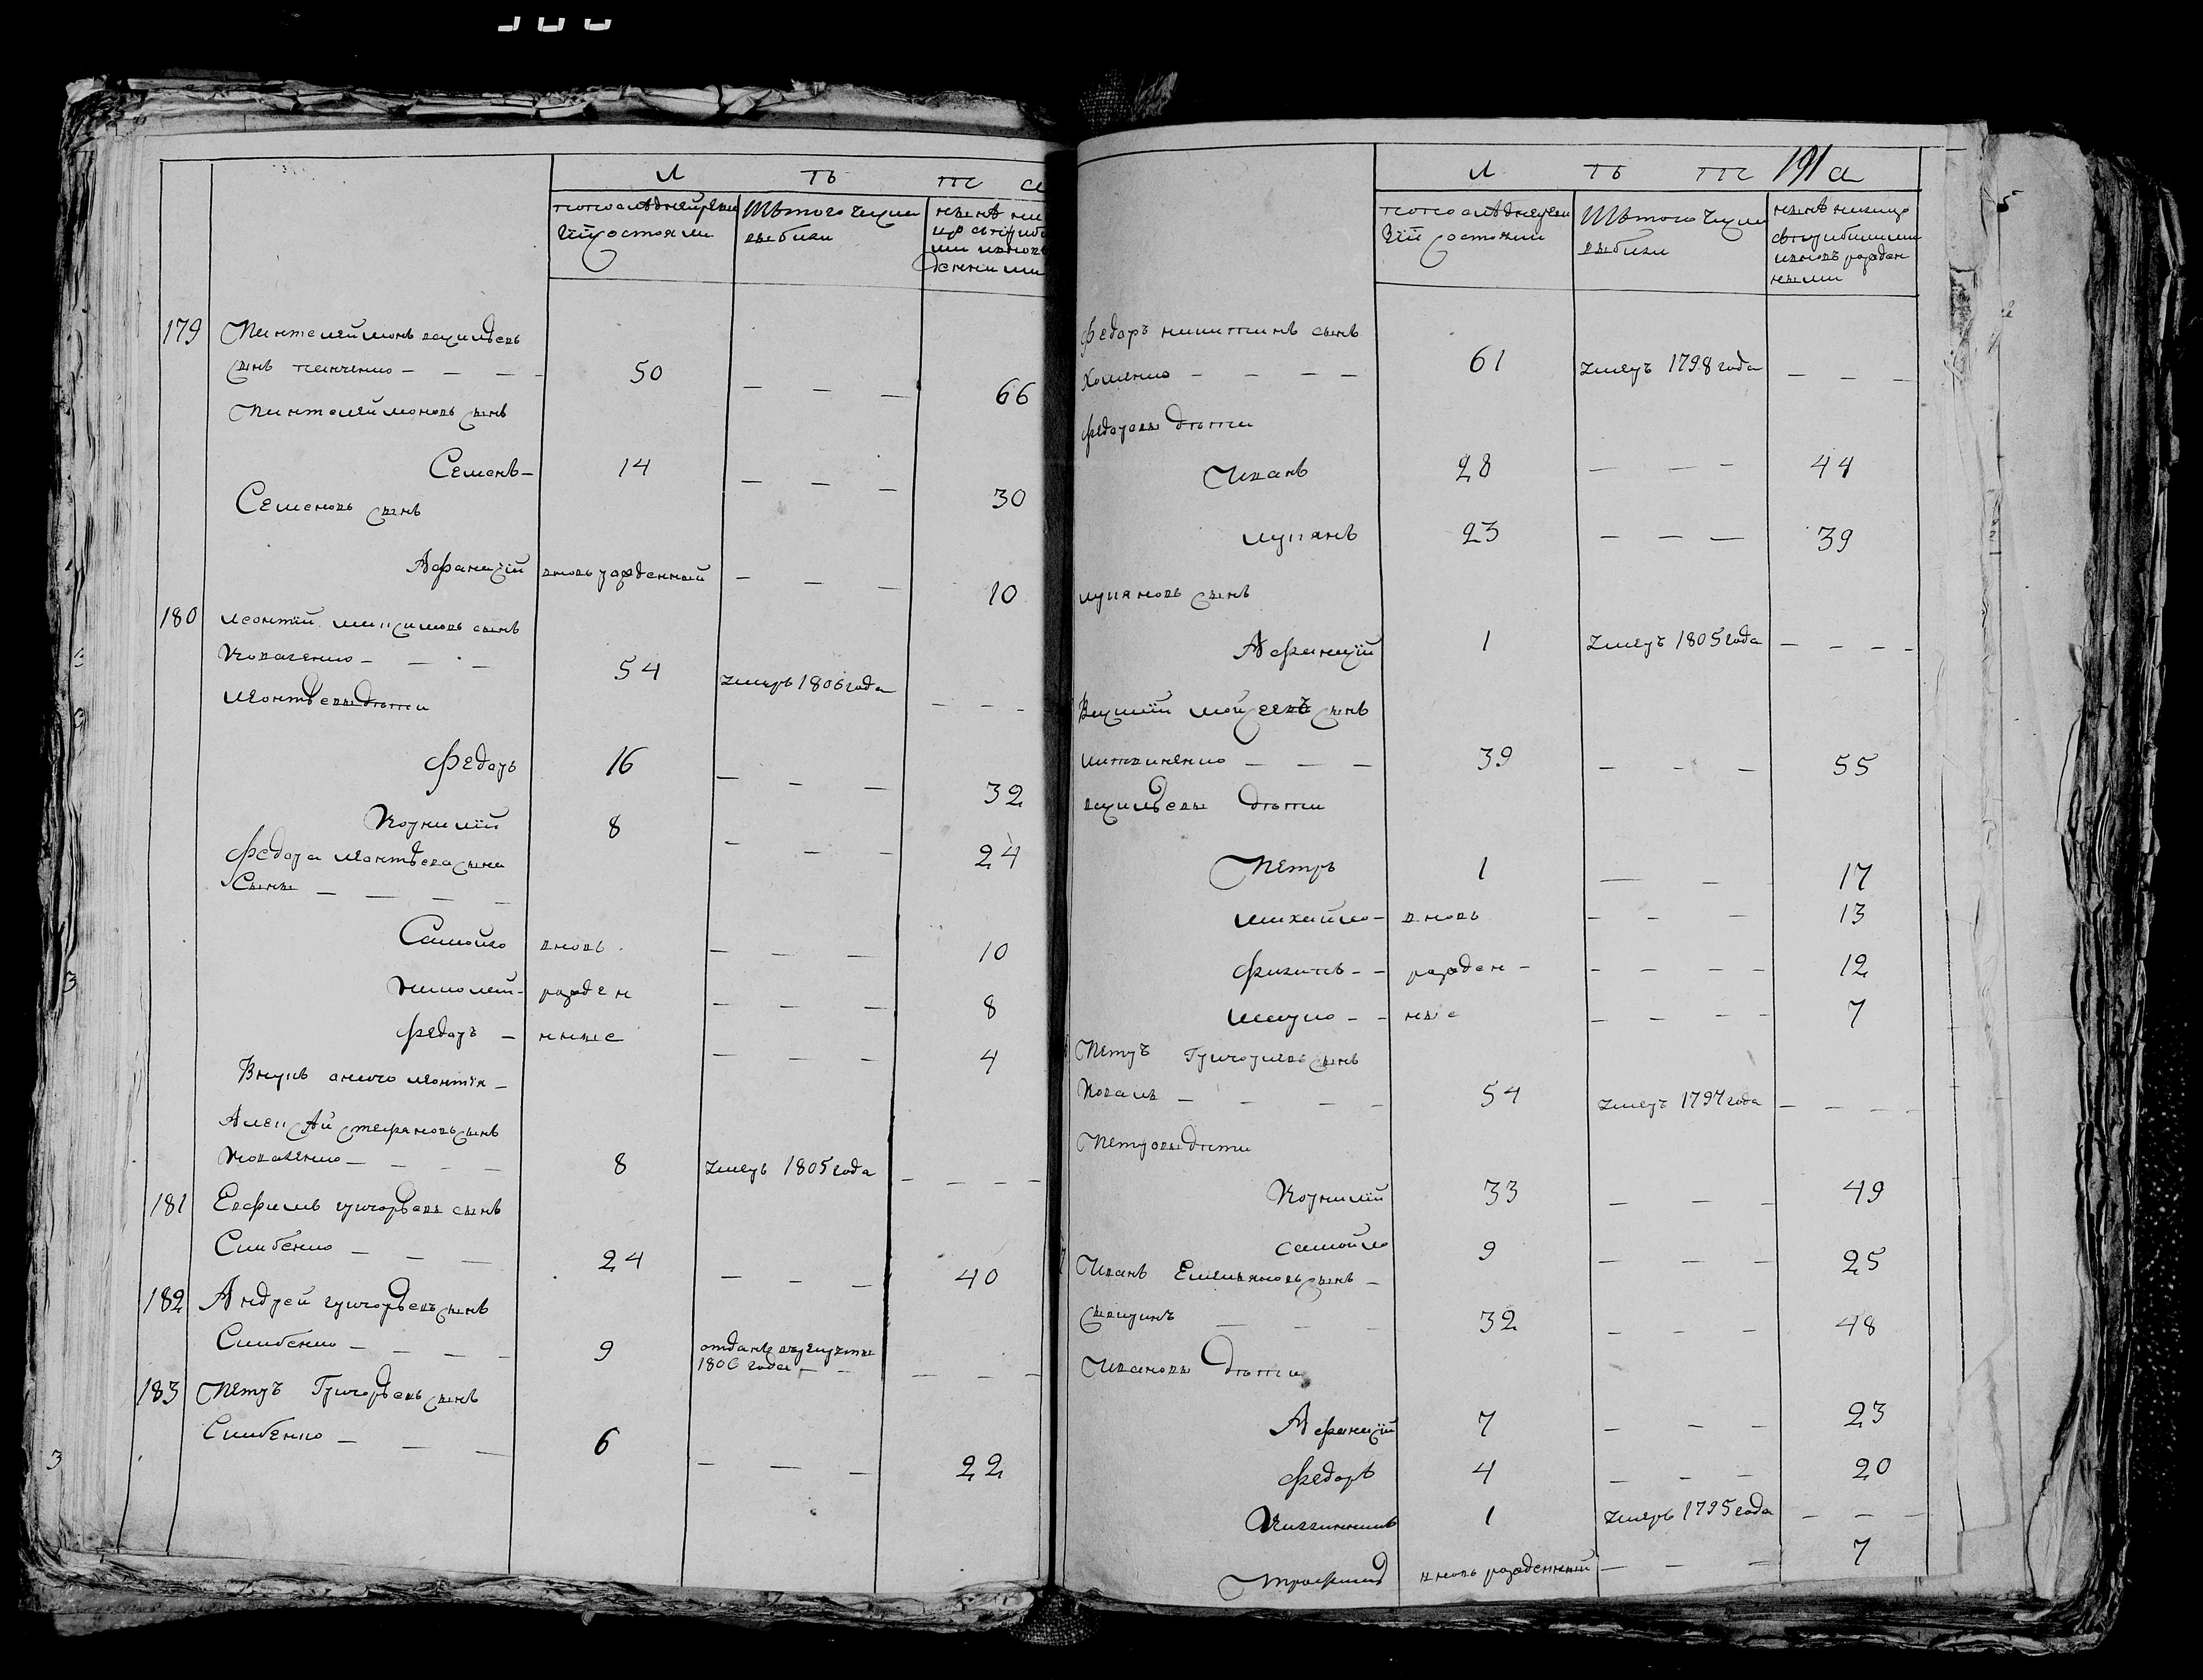 Л Ѣ Т А
по последней реви
зїи состояли
Изъ того числа
выбили
ныне на
лицо съ прибы
ми и вновь
денними
179 Пантелеймонъ васильевъ
сынъ панченко — — — — 50 — — — 66
Пантелеймоновъ сынъ
Семенъ — 14 — — — 30
Семеновъ сынъ
Афанасїй вновь рожденный — — — 10
180 Леонтїй максимовъ сынъ
Коваленко — — — 54 умеръ 1806 года — — —
Леонтьевы дѣти
Федоръ 16 — — — 32
Корнилїй 8 — — — 24
Федора Леонтьева сына
Сыны — — — —
Самойло вновь — — — 10
Николай — рожден — — — 8
Федоръ — нные — — — 4
Внукъ онаго Леонтїя —
Алексѣй стефановъ сынъ
Коваленко — — — — 8 умеръ 1805 года — — — —
181 Евфимъ григорьевъ сынъ
Скибенко — — — 24 — — — 40
182 Андрей григорьевъ сынъ
Скибенко — — — — 9 отданъ в рекруты
1806 года — — — — —
183 Петръ Григорьевъ сынъ
Скибенко — — — 6 — — — 22
Л Ѣ Т 191 А
по последней реви
зїй состояли
Изъ того числа
выбили
ныне налицо
съ прибылими
и вновь рожден
ными
Федоръ никитинъ сынъ
Хоменко — — — — 61 умеръ 1798 года — — —
Федоровы дѣти
Иванъ 28 — — — 44
лукянъ 23 — — — 39
лукяновъ сынъ
Афанасїй 1 умеръ 1805 года — — — —
Василїй мойсеевъ сынъ
литвиненко — — — 39 — — — 55
васильевы дѣти
Петръ 1 — — 17
михайло — вновь — — — 13
филипъ — — рожден — — — — — 12
ишуко — — ные — — — — 7
Петръ Григорьевъ сынъ
Коваль — — — — 54 умеръ 1797 года — — — —
Петровы дѣти
Корнилїй 33 — — — 49
самойло 9 — — — 25
Иванъ Емельяновъ сынъ —
— — — 32 — — — 48
Ивановы дѣти
Афанасїй 7 — — — 23
Федоръ 4 — — — 20
1 умеръ 1795 года — — —
Трофимъ вновь рожденный — — 7